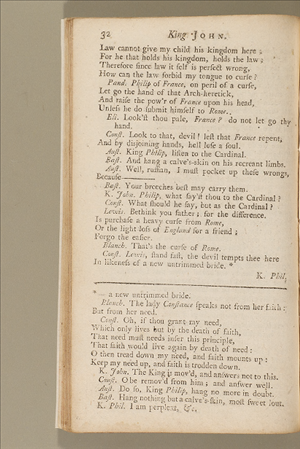 32 King JOHN.
Law cannot give my child his kingdom here;
For he that holds his kingdom, holds the law;
Therefore since law it self is perfect wrong,
How can the law forbid my tongue to curse?
Pand. Philip of France, on peril of a curse,
Let go the hand of that Arch-heretick,
And raise the pow'r of France upon his head,
Unless he do submit himself to Rome.
Eli. Look'st thou pale, France? do not let go thy
hand.
Const. Look to that, devil! lest that France repent,
And by disjoining hands, hell lose a soul.
Aust. King Philip, listen to the Cardinal.
Bast. And hang a calve's-skin on his recreant limbs.
Aust. Well, ruffian, I must pocket up these wrongs,
Because—
Bast. Your breeches best may carry them.
K. John. Philip, what say'st thou to the Cardinal?
Const. What should he say, but as the Cardinal?
Lewis. Bethink you father; for the difference
Is purchase of a heavy curse from Rome,
Or the light loss of England for a friend;
Forgo the easier.
Blanch. That's the curse of Rome.
Const. Lewis, stand fast, the devil tempts thee here
In likeness of a new untrimmed bride. *
K. Phil.
* — a new untrimmed bride.
Blanch. The lady Constance speaks not from her faith:
But from her need.
Const. Oh, if thou grant my need,
Which only lives but by the death of faith,
That need must needs infer this principle,
That faith would live again by death of need:
O then tread down my need, and faith mounts up:
Keep my need up, and faith is trodden down.
K. John. The King is mov'd, and answers not to this.
Const. O be remov'd from him; and answer well.
Aust. Do so, King Philip, hang no more in doubt.
Bast. Hang nothing but a calve's-skin, most sweet lout.
K. Phil. I am perplext, &c.